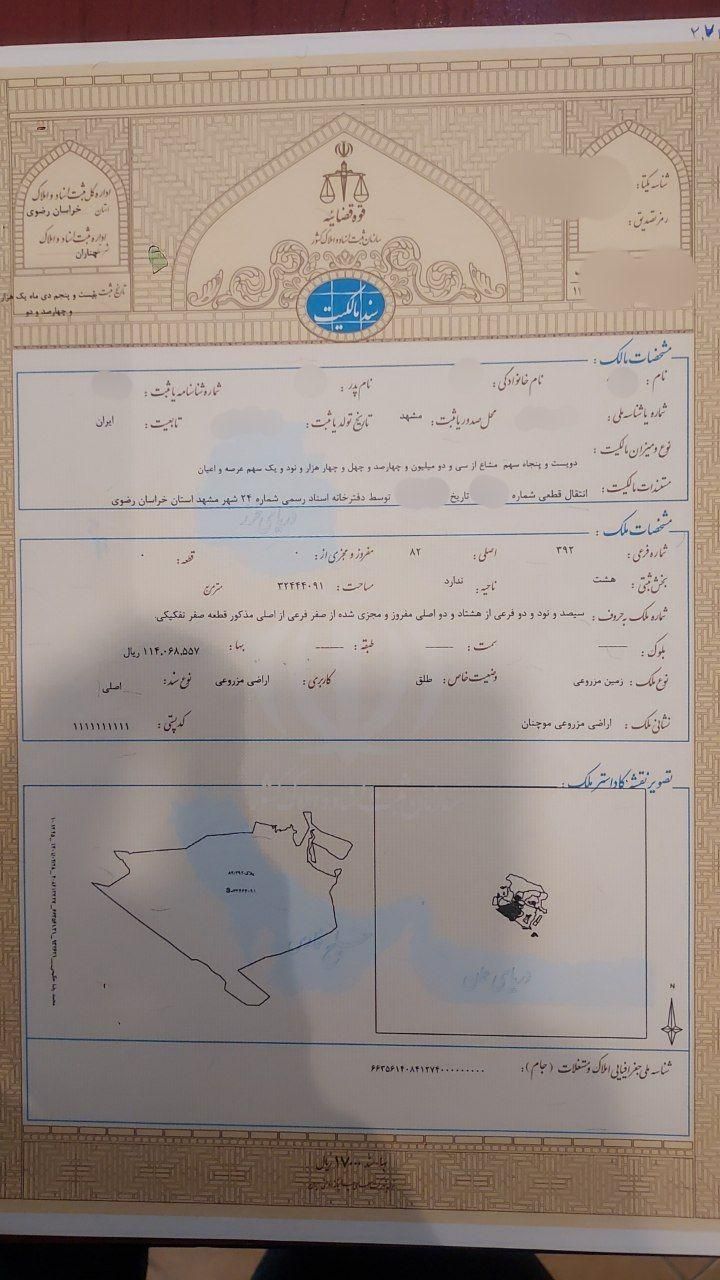 قوه قضائیه
سازمان ثبت اسناد و املاک کشور
سند مالکیت
شناسه یکتا :
رمز تصدیق :
اداره کل ثبت اسناد و املاک
استان خراسان رضوی
اداره ثبت اسناد و املاک
چناران
تاریخ ثبت بیست و پنجم دی ماه یک هزار
و چهارصد و دو
مشخصات مالک :
نام : نام خانوادگی : نام پدر : شماره شناسنامه یا ثبت :
شماره یا شناسه ملی : محل صدور یا ثبت : مشهد تاریخ تولد یا ثبت : تابعیت : ایران
نوع و میزان مالکیت :
دویست و پنجاه سهم مشاع از سی و دو میلیون و چهارصد و چهل و چهار هزار و نود و یک سهم عرصه و اعیان
مستندات مالکیت : انتقال قطعی شماره تاریخ توسط دفترخانه اسناد رسمی شماره ۲۴ شهر مشهد استان خراسان رضوی
مشخصات ملک :
شماره فرعی : ۳۹۲ اصلی : ۸۲ مفروز و مجزی از : ۰ قطعه : ۰
بخش ثبتی : هشت ناحیه : ندارد مساحت : ۳۲۴۴۴۰۹۱ مترمربع
شماره ملک به حروف : سیصد و نود و دو فرعی از هشتاد و دو اصلی مفروز و مجزی شده از صفر فرعی از اصلی مذکور قطعه صفر تفکیکی.
بلوک : —— سمت : —— طبقه : —— بها : ۱۱۴,۰۶۸,۵۵۷ ریال
نوع ملک : زمین مزروعی وضعیت خاص : طلق کاربری : اراضی مزروعی نوع سند : اصلی
نشانی ملک : اراضی مزروعی موچنان کد پستی : ۱۱۱۱۱۱۱۱۱۱
تصویر نقشه کاداستر ملک :
N
دریای خزر
خلیج فارس
دریای عمان
شناسه ملی جغرافیایی املاک و مستغلات (جام) :